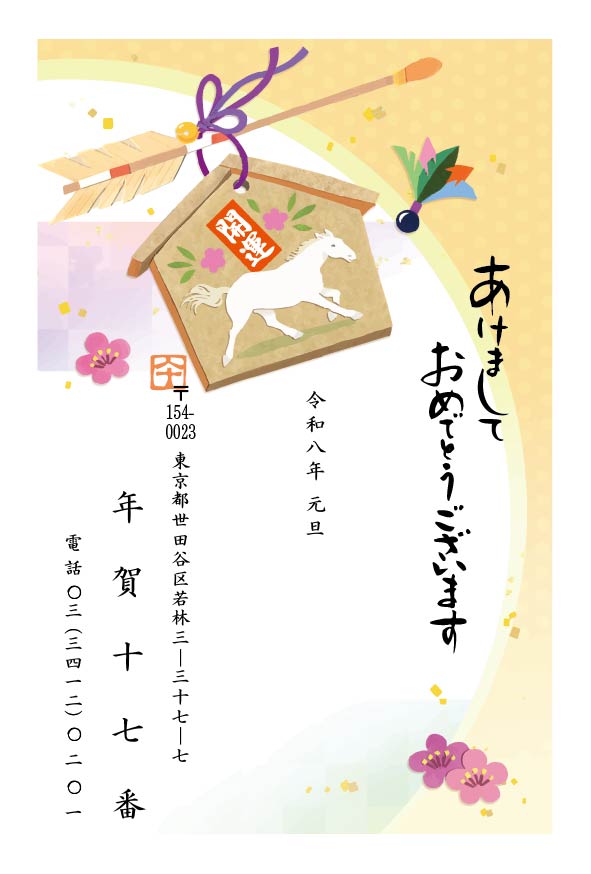 あけまして
おめでとうございます
開運
令和八年 元旦
〒
154-
0023
東京都世田谷区若林三―三十七―七
年賀十七番
電話〇三(三四一二)〇二〇一